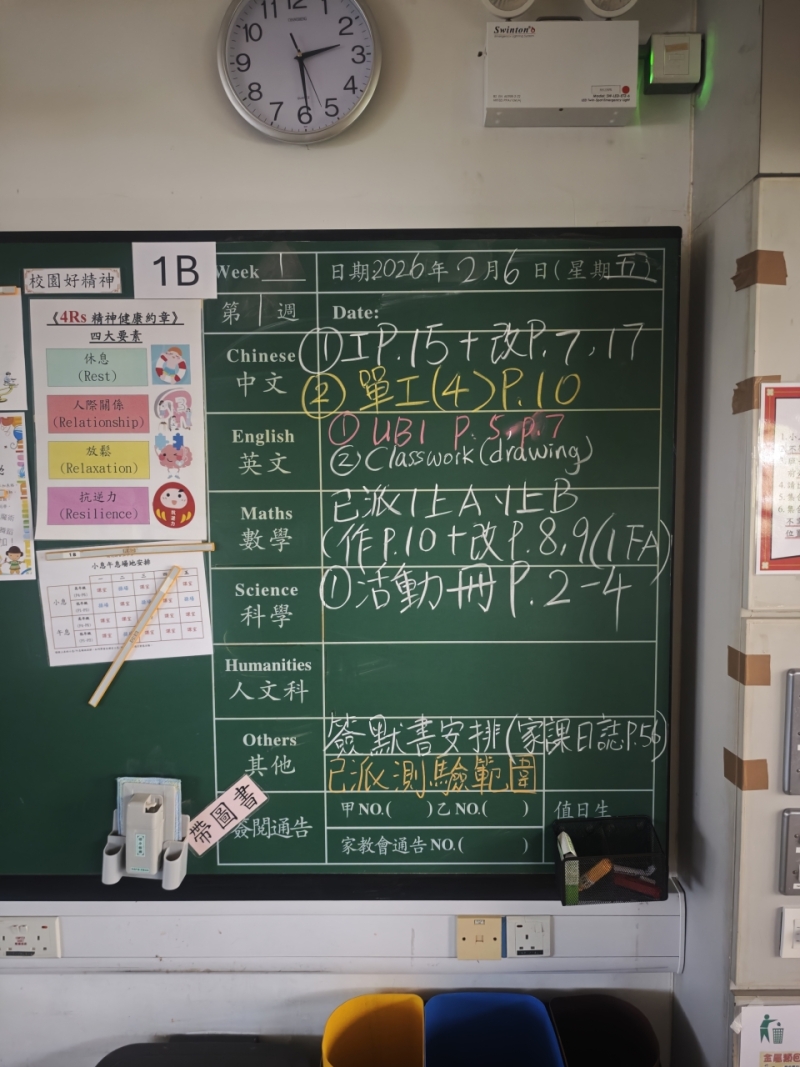 12
11
1
10
2
9
3
8
4
7
5
6
Swinton
校園好精神
1B
《4Rs 精神健康約章》
四大要素
休息
(Rest)
人際關係
(Relationship)
放鬆
(Relaxation)
抗逆力
(Resilience)
小息午息場地安排
小息
午息
Week 1
日期2026年2月6日(星期五)
第1週
Date:
Chinese
中文
①工P.15+改P.7,17
②單工(4)P.10
English
英文
①UB1 P.5,p.7
②Classwork(drawing)
Maths
數學
已派1上A、1上B
(作P.10+改P.8,9(1FA)
Science
科學
①活動冊P.2-4
Humanities
人文科
Others
其他
簽默書安排(家課日誌P.56)
已派測驗範圍
帶圖書
簽閱通告
甲NO.( )乙NO.( )
值日生
家教會通告NO.( )